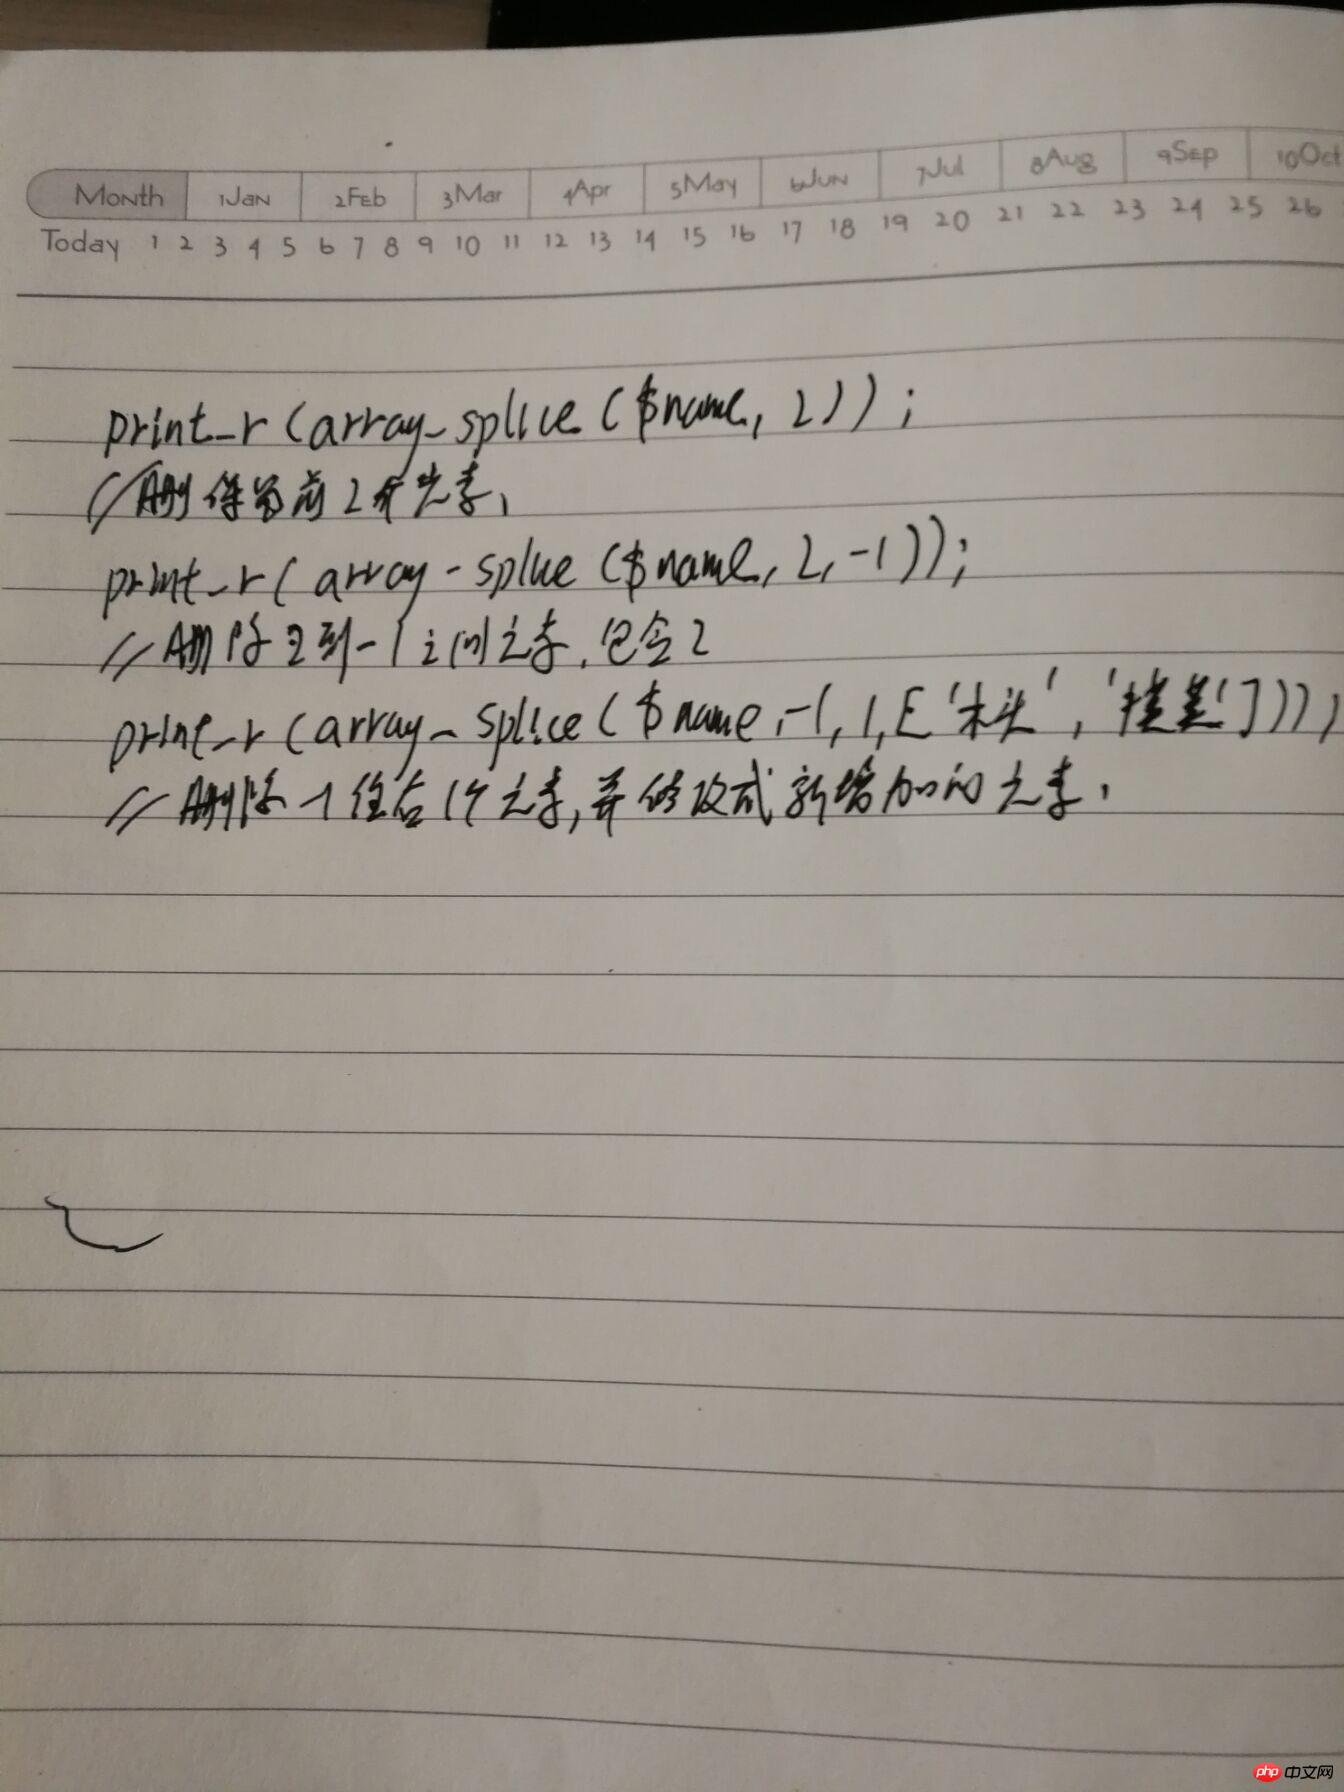 Month 1Jan 2Feb 3Mar 4Apr 5May 6Jun 7Jul 8Aug 9Sep 10Oct
Today 1 2 3 4 5 6 7 8 9 10 11 12 13 14 15 16 17 18 19 20 21 22 23 24 25 26
print_r(array_splice($name, 2));
//保留前2个元素,
print_r(array-splice($name, 2, -1));
//删除2到-1之间元素,包含2
print_r(array_splice($name, -1, 1, ['木头', ']));
//删除-1往右1个元素,并修改成新增加的元素,
php 中文网